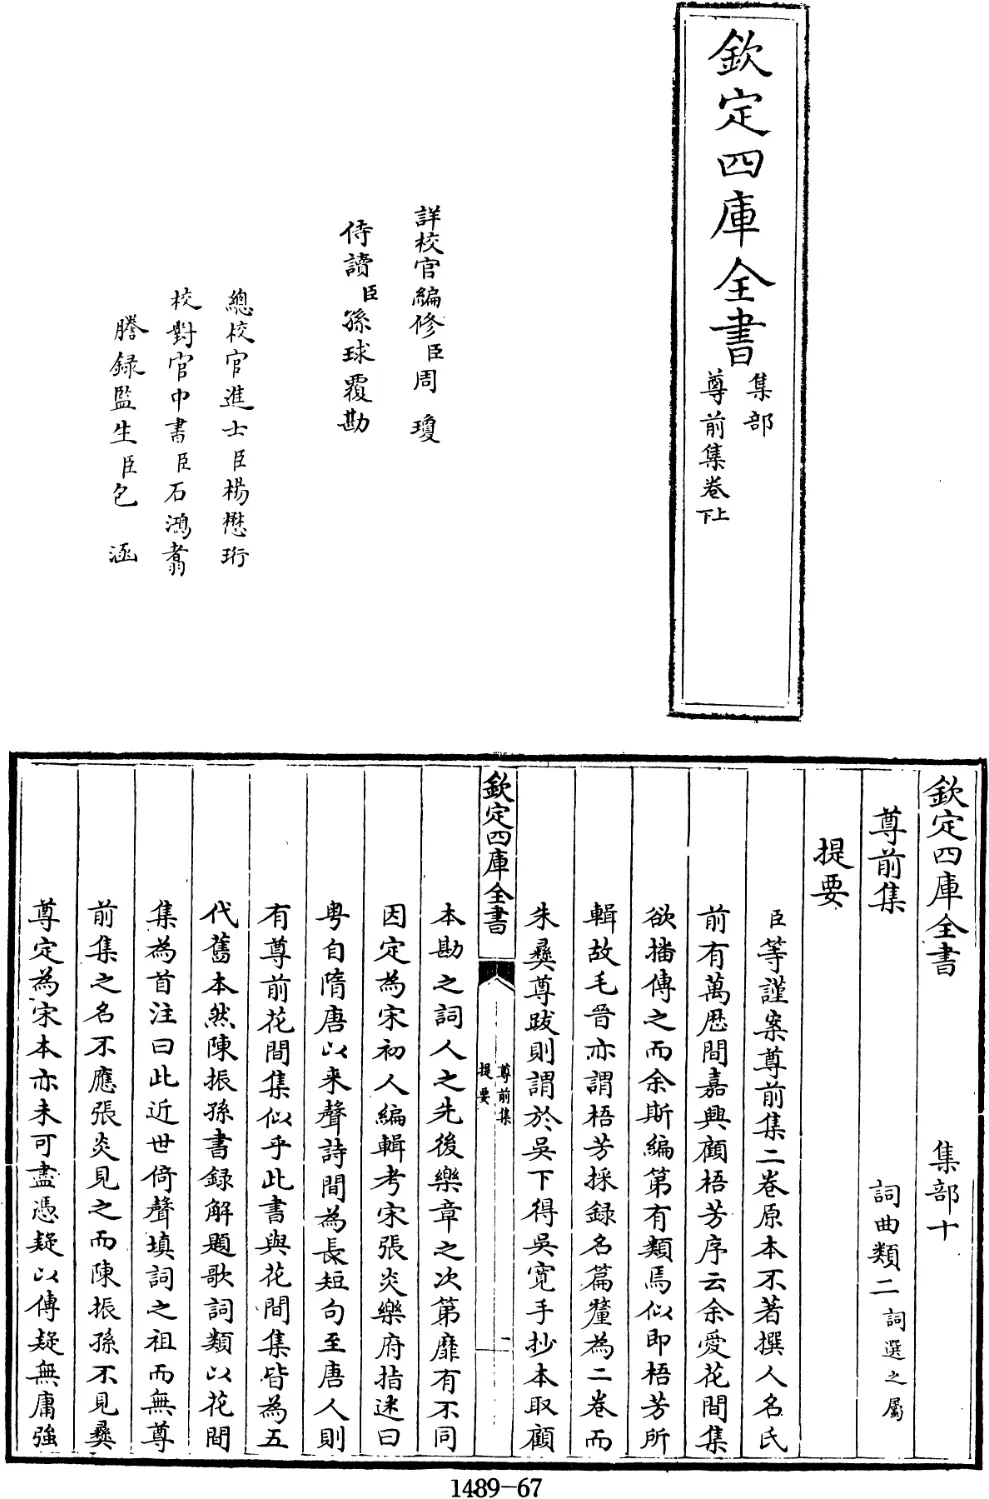 欽定四庫全書
集部
尊前集卷上下
詳校官編修臣周瓊
侍讀臣孫球覆勘
總校官進士臣楊懋珩
校對官中書臣石鴻翥
謄録監生臣包涵
欽定四庫全書 集部十
尊前集 詞曲類二 詞選之屬
提要
臣等謹案尊前集二卷原本不著撰人名氏
前有萬厯間嘉興顧梧芳序云余愛花間集
欲播傳之而余斯編第有類焉似即梧芳所
輯故毛晉亦謂梧芳採録名篇釐為二卷而
朱彝尊跋則謂於吳下得吳寛手抄本取顧
欽定四庫全書
尊前集
提要
一
本勘之詞人之先後樂章之次第靡有不同
因定為宋初人編輯考宋張炎樂府指迷曰
粤自隋唐以来聲詩間為長短句至唐人則
有尊前花間集似乎此書與花間集皆為五
代舊本然陳振孫書録解題歌詞類以花間
集為首注曰此近世倚聲填詞之祖而無尊
前集之名不應張炎見之而陳振孫不見彝
尊定為宋本亦未可盡憑疑以傳疑無庸強
1489-67